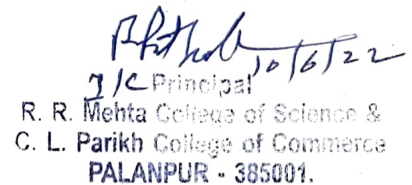 10/6/22
I/C Principal
R. R. Mehta College of Science &
C. L. Parikh College of Commerce
PALANPUR - 385001.